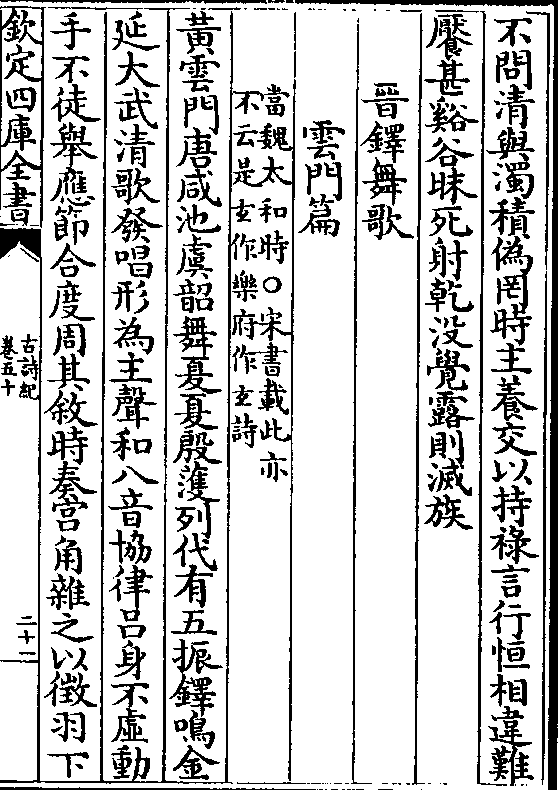 不問清與濁積偽罔時主養交以持祿言行恒相違難
饜甚谿谷昧死射乾没覺露則滅族
晉鐸舞歌
雲門篇
當魏太和時○宋書載此亦
不云是玄作樂府作玄詩
黃雲門唐咸池虞韶舞夏夏殷濩列代有五振鐸鳴金
延大武清歌發唱形為主聲和八音協律呂身不虛動
手不徒舉應節合度周其敘時奏宮角雜之以徵羽下
欽定四庫全書
古詩紀
卷五十
二十一